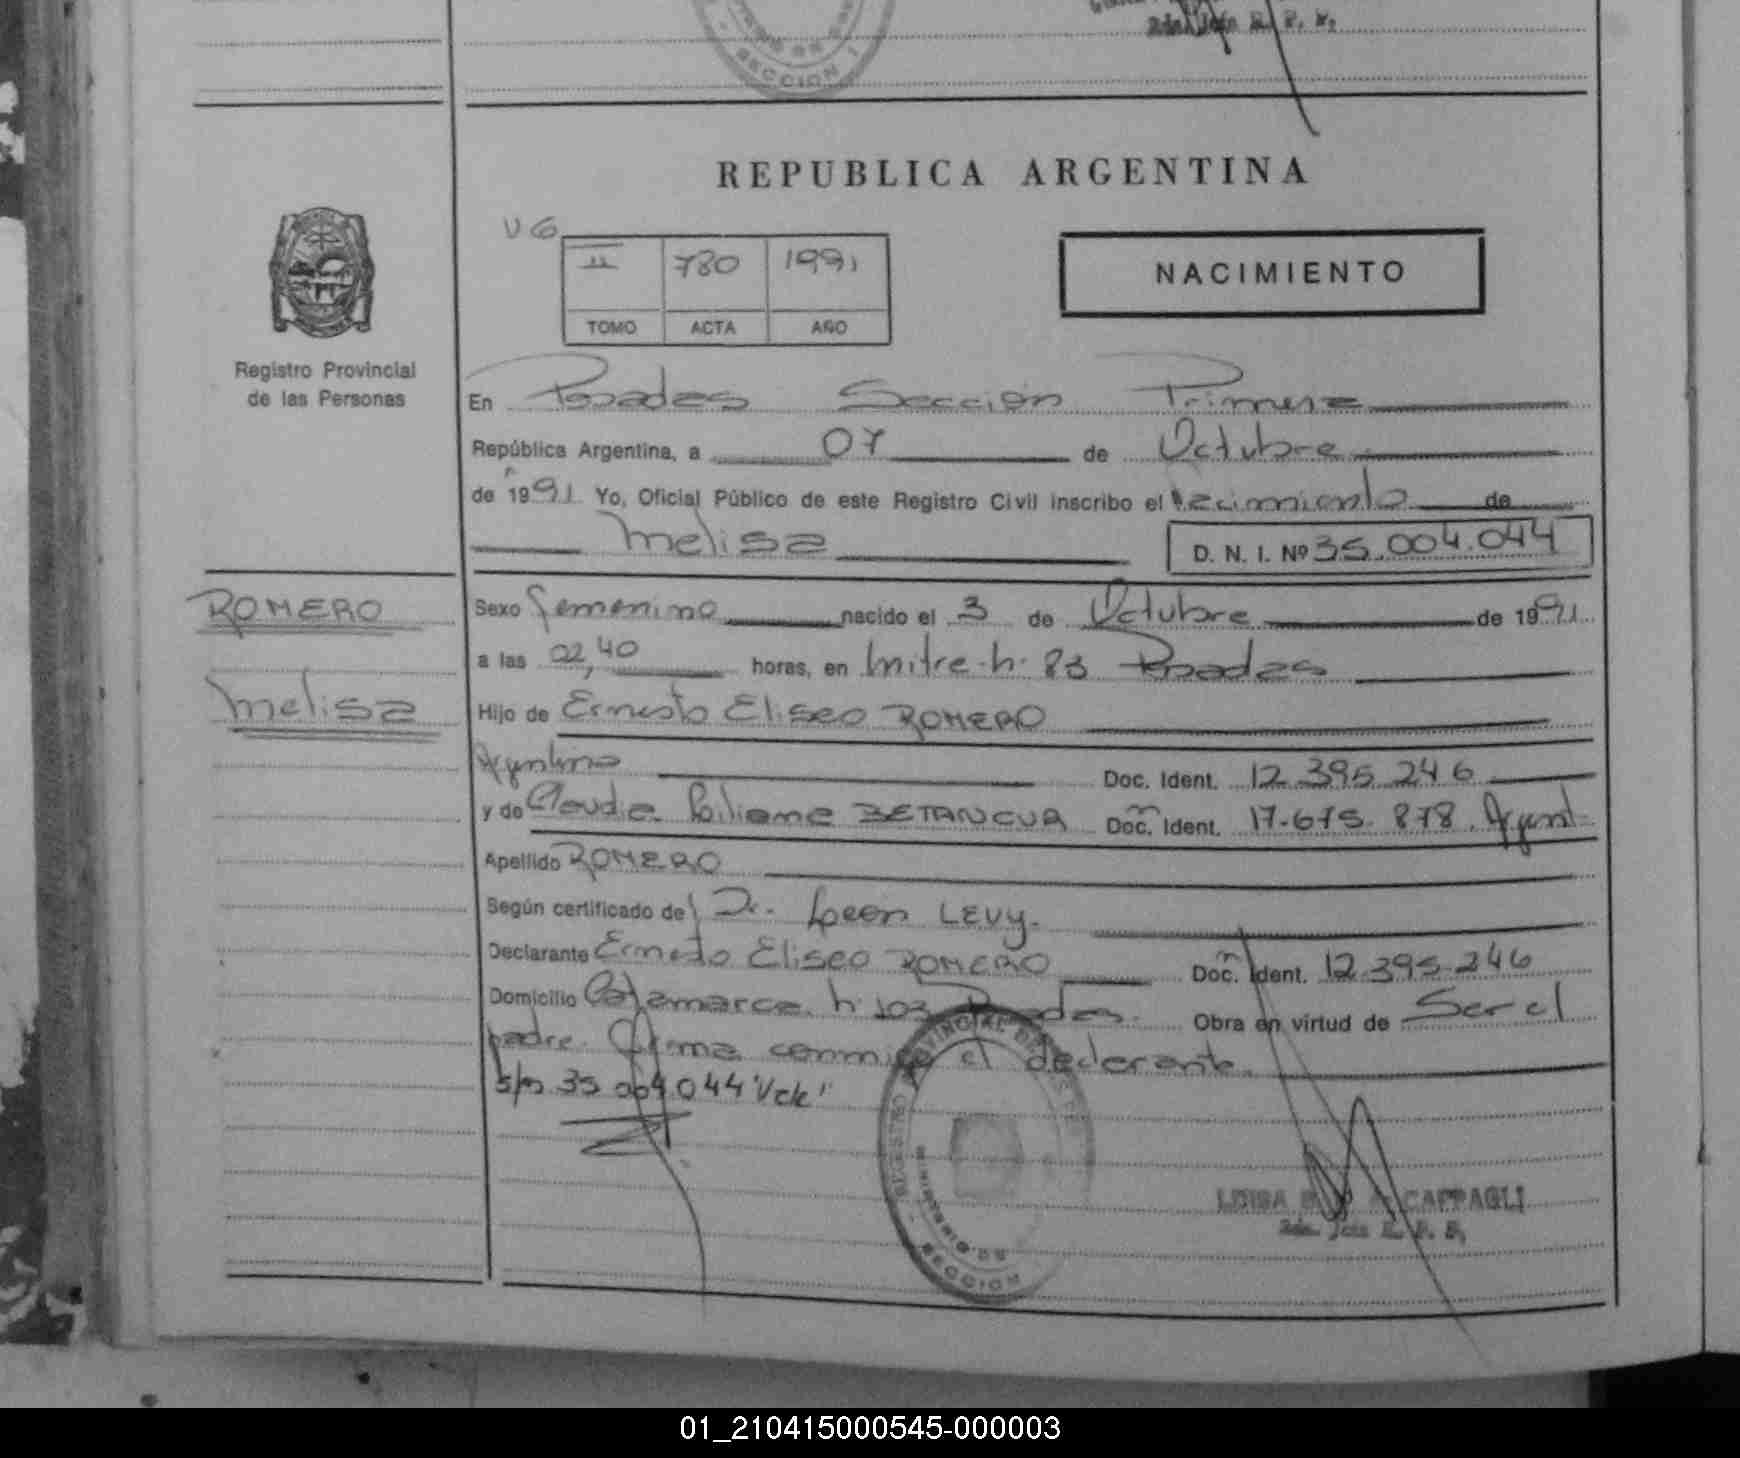 SECCION 1
REPUBLICA ARGENTINA
VG
II 780 1991
TOMO ACTA AÑO
NACIMIENTO
Registro Provincial
de las Personas
En Posadas Sección Primera
República Argentina, a 07 de Octubre
de 1991 Yo, Oficial Público de este Registro Civil inscribo el Nacimiento de
Melisa D. N. I. Nº 35.004.044
ROMERO
Melisa
Sexo femenino nacido el 3 de Octubre de 1991
a las 02,40 horas, en Mitre h. 83 Posadas
Hijo de Ernesto Eliseo ROMERO
Argentino Doc. Ident. 12.395.246
y de Claudia Liliana BETANCUR Doc. Ident. 17.675.878. Argent.
Apellido ROMERO
Según certificado del Dr. Leon LEVY.
Declarante Ernesto Eliseo ROMERO Doc. Ident. 12.395.246
Domicilio Catamarca h. 103 Posadas. Obra en virtud de Ser el
padre. Firma conmigo el declarante.
s/n 35.004.044 'Vale'
REGISTRO PROVINCIAL DE
MINISTERIO DE
SECCION
LUISA CAPPAGLI
01_210415000545-000003